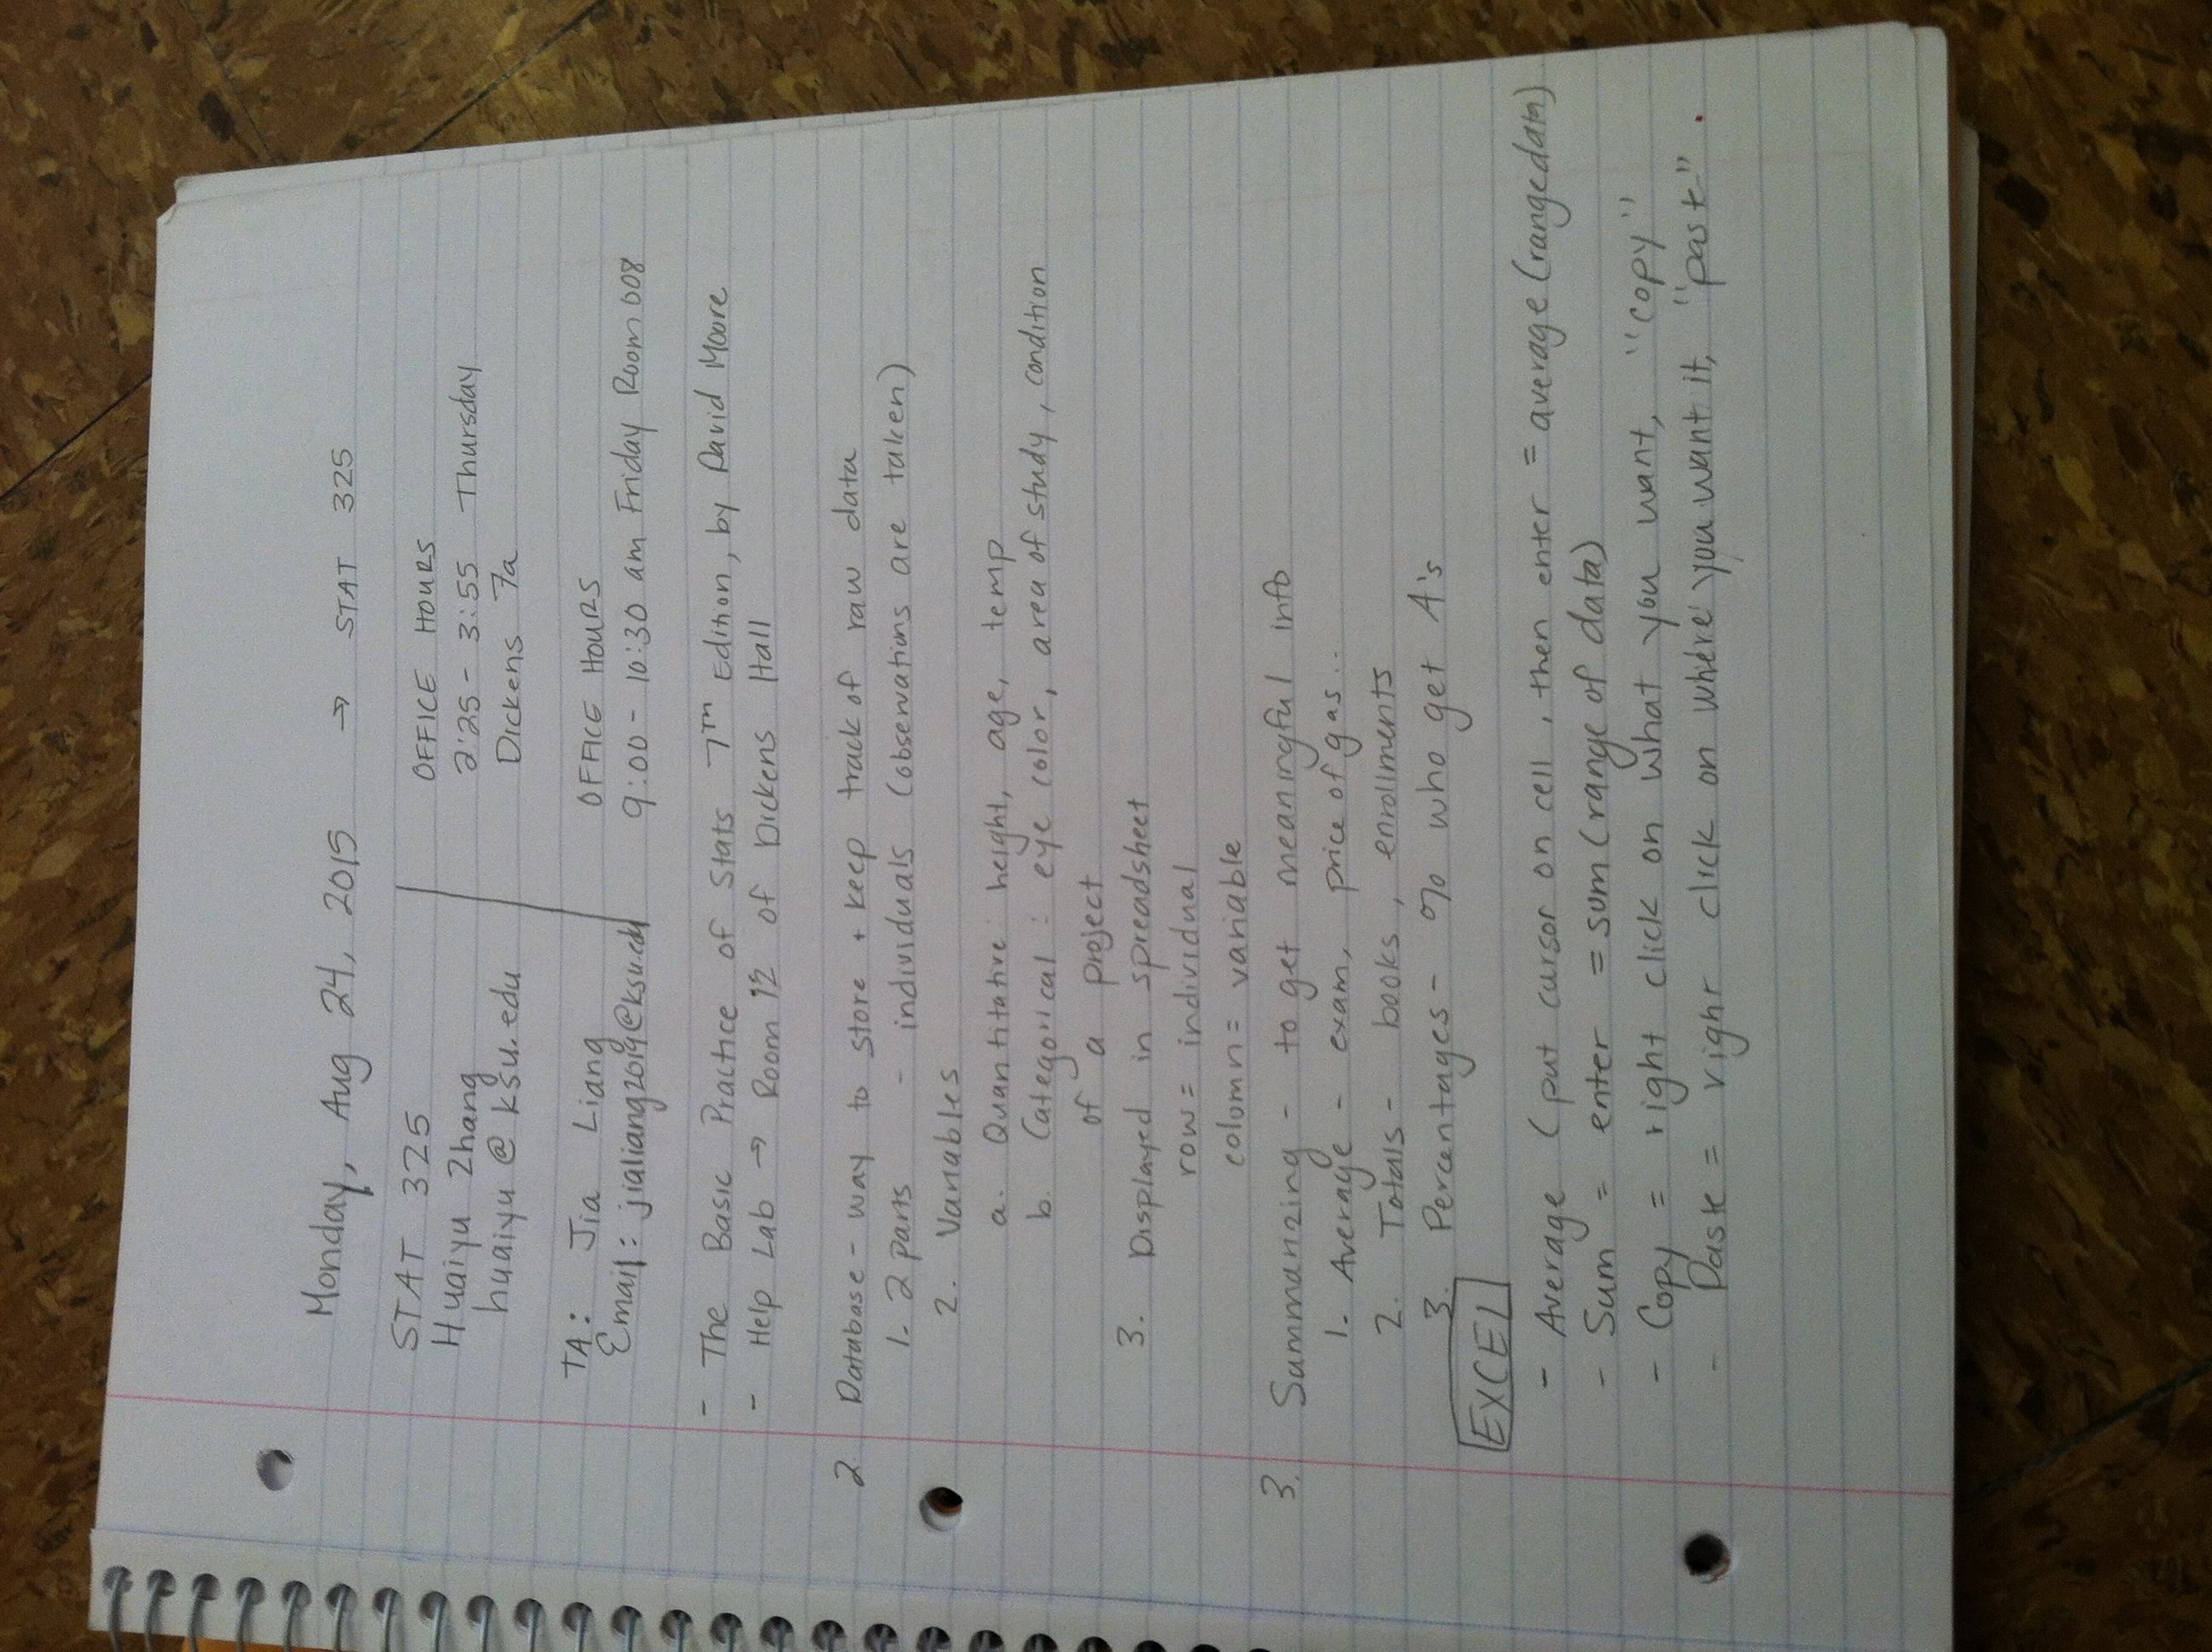 Monday, Aug 24, 2015 → STAT 325
STAT 325
Huaiyu Zhang
huaiyu @ ksu.edu
OFFICE HOURS
2:25 - 3:55 Thursday
Dickens 7a
TA: Jia Liang
Email: jialiang2019@ksu.edu
OFFICE HOURS
9:00 - 10:30 am Friday Room 008
- The Basic Practice of Stats 7TH Edition, by David Moore
- Help Lab → Room 12 of Dickens Hall
2 Database - way to store + keep track of raw data
1. 2 parts - individuals (observations are taken)
2. Variables
a. Quantitative: height, age, temp
b. Categorical: eye color, area of study, condition
of a project
3. Displayed in spreadsheet
row = individual
colomn = variable
3. Summarizing - to get meaningful info
1. Average - exam, price of gas...
2. Totals - books, enrollments
3. Percentages - % who get A's
EXCEL
- Average (put cursor on cell, then enter = average (rangedata)
- Sum = enter = sum (range of data)
- Copy = right click on what you want, "copy"
- Paste = right click on where you want it, "paste".